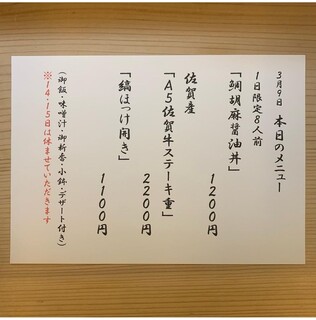 3月9日 本日のメニュー
1日限定8人前
「鯛胡麻醤油丼」
1200円
佐賀産
「A5佐賀牛ステーキ重」
2200円
「縞ほっけ開き」
1100円
(御飯・味噌汁・御新香・小鉢・デザート付き)
※14・15日は休ませていただきます